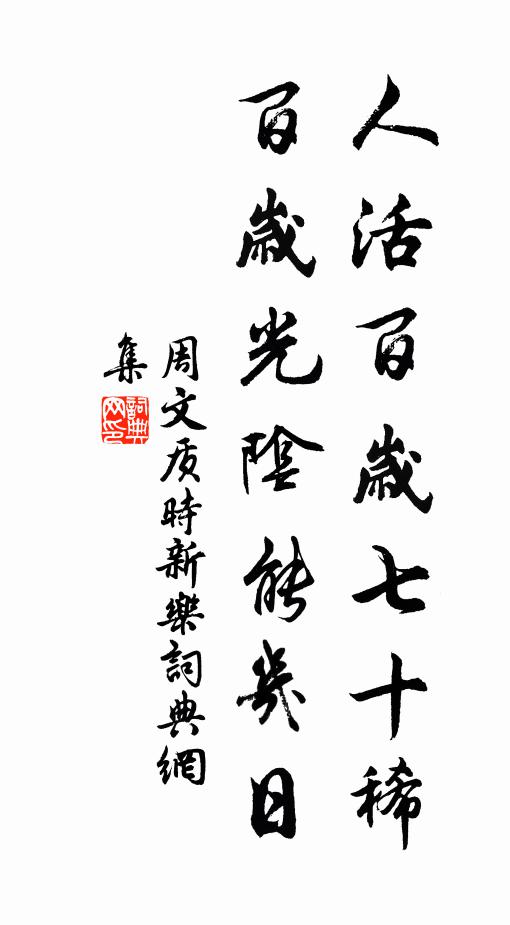 人活百歲七十稀
百歲光陰能幾日
周文质時新樂詞典網
集
詞典網印